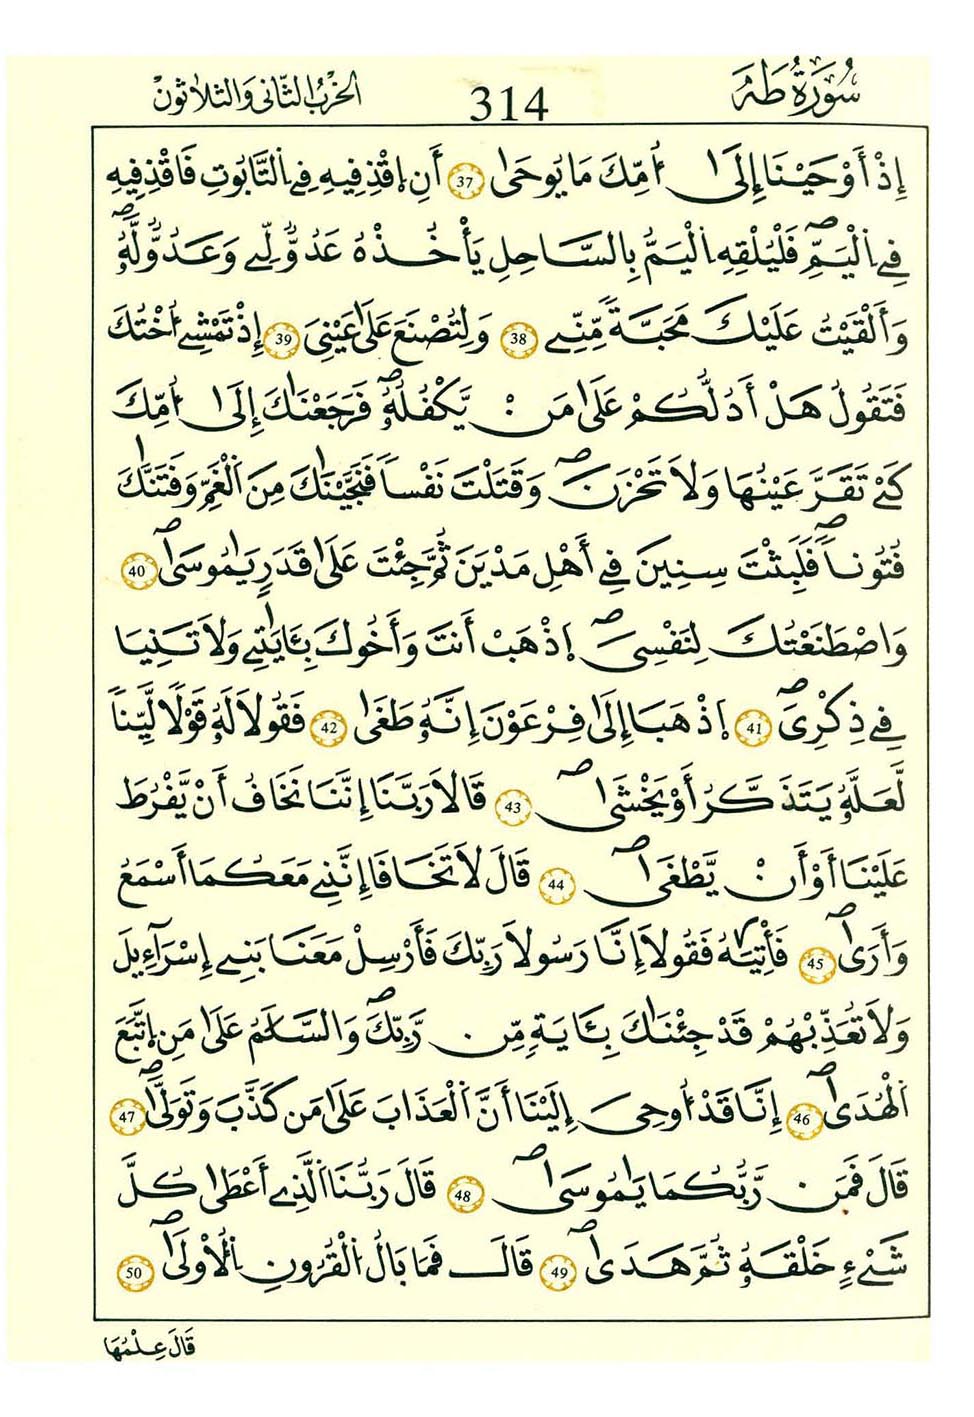 سُورَةُ طَهَ 314 الحِزْبُ الثَّانِي وَالثَّلَاثُونْ
إِذَ اَوْحَيْنَا إِلَىٰ أُمِّكَ مَا يُوحَىٰ 37 أَنِ اِقْذِفِيهِ فِے اِلتَّابُوتِ فَاقْذِفِيهِ
فِے اِلْيَمِّ صـ فَلْيُلْقِهِ اِلْيَمُّ بِالسَّاحِلِ يَأْخُذْهُ عَدُوٌّ لِّے وَعَدُوٌّ لَّهُۥ صـ
وَأَلْقَيْتُ عَلَيْكَ مَحَبَّةً مِّنِّے 38 وَلِتُصْنَعَ عَلَىٰ عَيْنِيَ 39 إِذْ تَمْشِے أُخْتُكَ
فَتَقُولُ هَلْ أَدُلُّكُمْ عَلَىٰ مَنْ يَّكْفُلُهُۥ صـ فَرَجَعْنَاكَ إِلَىٰ أُمِّكَ
كَے تَقَرَّ عَيْنُهَا وَلَا تَحْزَنَ صـ وَقَتَلْتَ نَفْساً فَنَجَّيْنَاكَ مِنَ اَلْغَمِّ وَفَتَنَّاكَ
فُتُوناً صـ فَلَبِثْتَ سِنِينَ فِے أَهْلِ مَدْيَنَ ثُمَّ جِئْتَ عَلَىٰ قَدَرٍ يَٰمُوسَىٰ صـ 40
وَاصْطَنَعْتُكَ لِنَفْسِيَ صـ اِذْهَبْ أَنتَ وَأَخُوكَ بِـَٔايَٰتِے وَلَا تَنِيَا
فِے ذِكْرِيَ صـ 41 اَذْهَبَا إِلَىٰ فِرْعَوْنَ إِنَّهُۥ طَغَىٰ 42 فَقُولَا لَهُۥ قَوْلًا لَّيِّناً
لَّعَلَّهُۥ يَتَذَكَّرُ أَوْ يَخْشَىٰ صـ 43 قَالَا رَبَّنَا إِنَّنَا نَخَافُ أَنْ يَّفْرُطَ
عَلَيْنَا أَوْ أَنْ يَّطْغَىٰ صـ 44 قَالَ لَا تَخَافَا إِنَّنِے مَعَكُمَا أَسْمَعُ
وَأَرَىٰ صـ 45 فَأْتِيَٰهُ فَقُولَا إِنَّا رَسُولَا رَبِّكَ فَأَرْسِلْ مَعَنَا بَنِے إِسْرَآءِيلَ
وَلَا تُعَذِّبْهُمْ قَدْ جِئْنَٰكَ بِـَٔايَةٍ مِّن رَّبِّكَ صـ وَالسَّلَٰمُ عَلَىٰ مَنِ اِتَّبَعَ
اَلْهُدَىٰ صـ 46 إِنَّا قَدُ اوحِيَ إِلَيْنَا أَنَّ اَلْعَذَابَ عَلَىٰ مَن كَذَّبَ وَتَوَلَّىٰ صـ 47
قَالَ فَمَن رَّبُّكُمَا يَٰمُوسَىٰ صـ 48 قَالَ رَبُّنَا اَلَّذِے أَعْطَىٰ كُلَّ
شَےْءٍ خَلْقَهُۥ ثُمَّ هَدَىٰ صـ 49 قَالَ فَمَا بَالُ اُلْقُرُونِ اِلُاولَىٰ صـ 50
قَالَ عِلْمُهَا